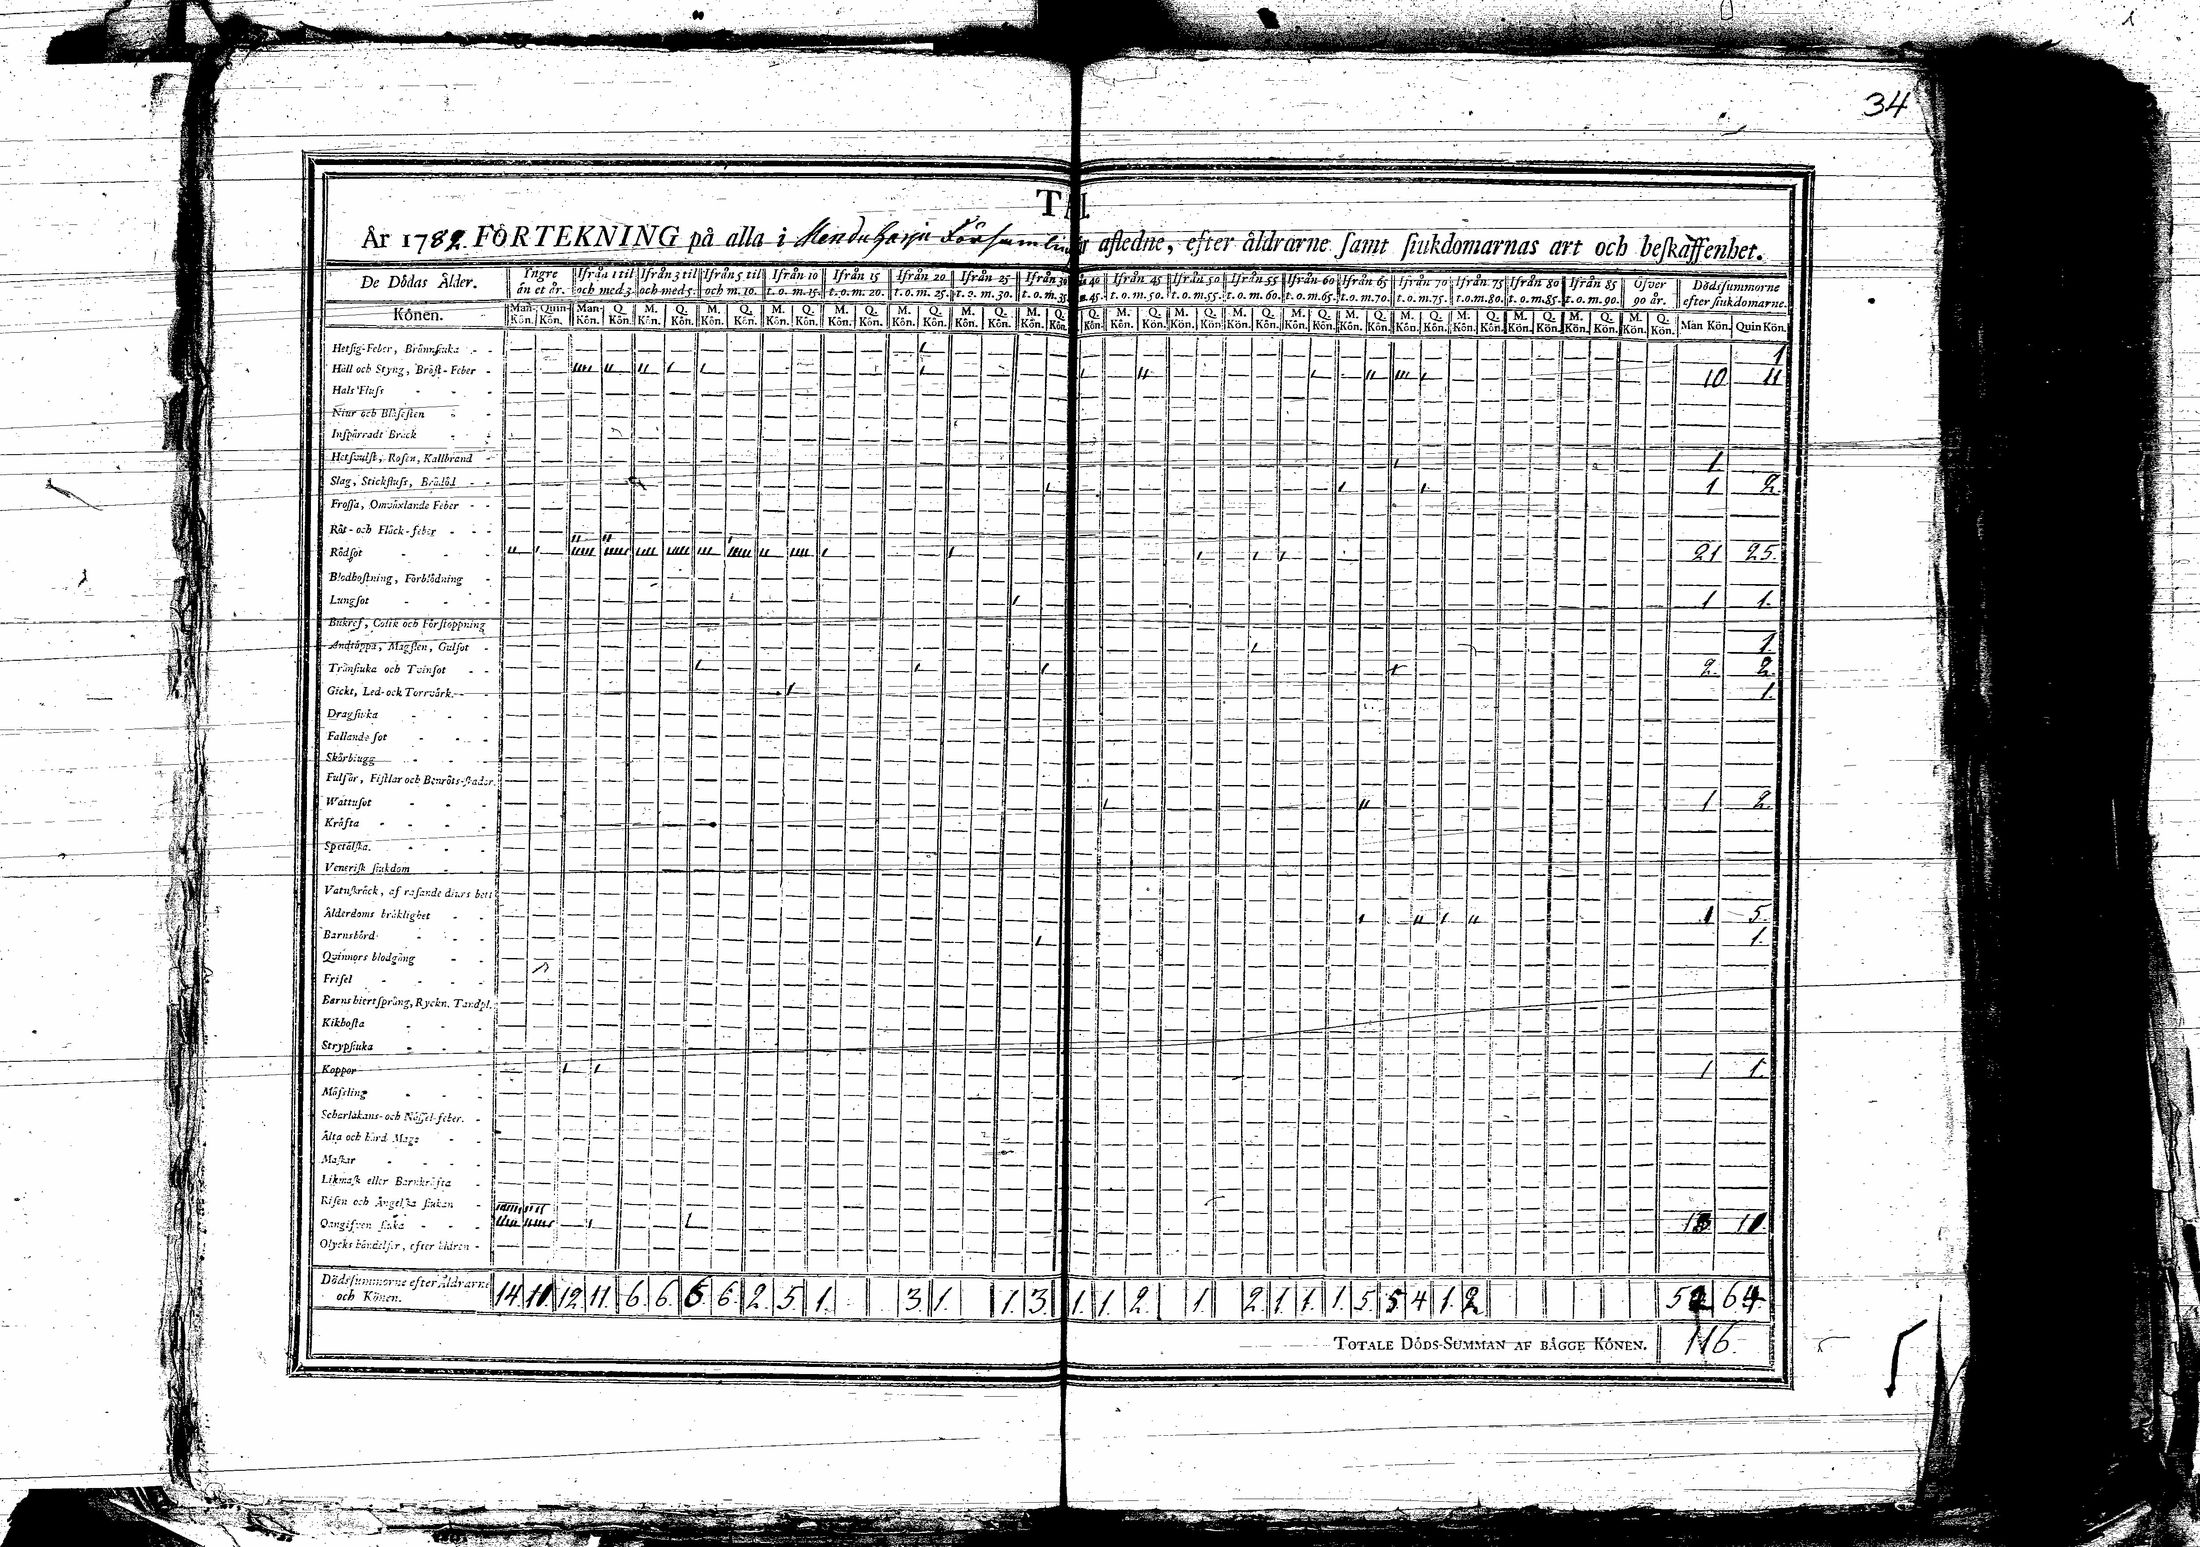 34
År 1782. FÖRTEKNING på alla i afledne, efter åldrarne samt siukdomarnas art och beskaffenhet.
De Dödas Ålder. Yngre än et år. Ifrån 1 til och med 3. Ifrån 3 til och med 5. Ifrån 5 til och m. 10. Ifrån 10 t. o. m. 15. Ifrån 15 t. o. m. 20. Ifrån 20 t. o. m. 25. Ifrån 25 t. o. m. 30. Ifrån 30 t. o. m. 35. 40 m. 45. Ifrån 45 t. o. m. 50. Ifrån 50 t. o. m. 55. Ifrån 55 t. o. m. 60. Ifrån 60 t. o. m. 65. Ifrån 65 t. o. m. 70. Ifrån 70 t. o. m. 75. Ifrån 75 t. o. m. 80. Ifrån 80 t. o. m. 85. Ifrån 85 t. o. m. 90. Öfver 90 år. Dödssummorne efter siukdomarne.
Könen. Man-Kön. Quin-Kön. Man-Kön. Q. Kön. M. Kön. Q. Kön. M. Kön. Q. Kön. M. Kön. Q. Kön. M. Kön. Q. Kön. M. Kön. Q. Kön. M. Kön. Q. Kön. M. Kön. Q. Kön. Q. Kön. M. Kön. Q. Kön. M. Kön. Q. Kön. M. Kön. Q. Kön. M. Kön. Q. Kön. M. Kön. Q. Kön. M. Kön. Q. Kön. M. Kön. Q. Kön. M. Kön. Q. Kön. M. Kön. Q. Kön. M. Kön. Q. Kön. Man Kön. Quin Kön.
Hetsig-Feber, Brännsiuka 1
Håll och Styng, Bröst-Feber 10 11
Hals Fluss
Niur och Blåsesten
Inspärradt Bråck
Hetsvulst, Rosen, Kallbrand 1
Slag, Stickfluss, Brådöd 1 2.
Frossa, Omväxlande Feber
Röt- och Fläck-feber
Rödsot 21 25.
Blodhostning, Förblödning
Lungsot 1 1.
Bukref, Colik och Förstoppning
Andtäppa, Magsten, Gulsot 1.
Trånsiuka och Tvinsot 2. 2.
Gickt, Led- ock Torrvärk. 1.
Dragsiuka
Fallande sot
Skörbiugg
Fulsår, Fistlar och Benröts-skador.
Wattusot 1 2.
Kräfta
Spetälska.
Venerisk siukdom
Vatuskräck, af rasande diurs bett
Ålderdoms bräklighet 1 5.
Barnsbörd 1.
Qvinnors blodgång
Frisel
Barns hiertsprång, Ryckn. Tandpl.
Kikhosta
Strypsiuka
Koppor 1 1.
Mässling
Scharlakans- och Nässel-feber.
Älta och hård Mage
Maskar
Likmask eller Barnkräfta
Risen och Ängelska siukan
Oangifven siuka 11.
Olycks händelser, efter bidren
Dödssummorne efter Åldrarne och Könen. 14. 11. 12. 11. 6. 6. 6. 6. 2. 5. 1. 3. 1. 1. 3. 1. 1. 2. 1. 2. 1. 1. 1. 5. 5. 4. 1. 2. 52 64.
TOTALE DÖDS-SUMMAN AF BÄGGE KÖNEN. 116.